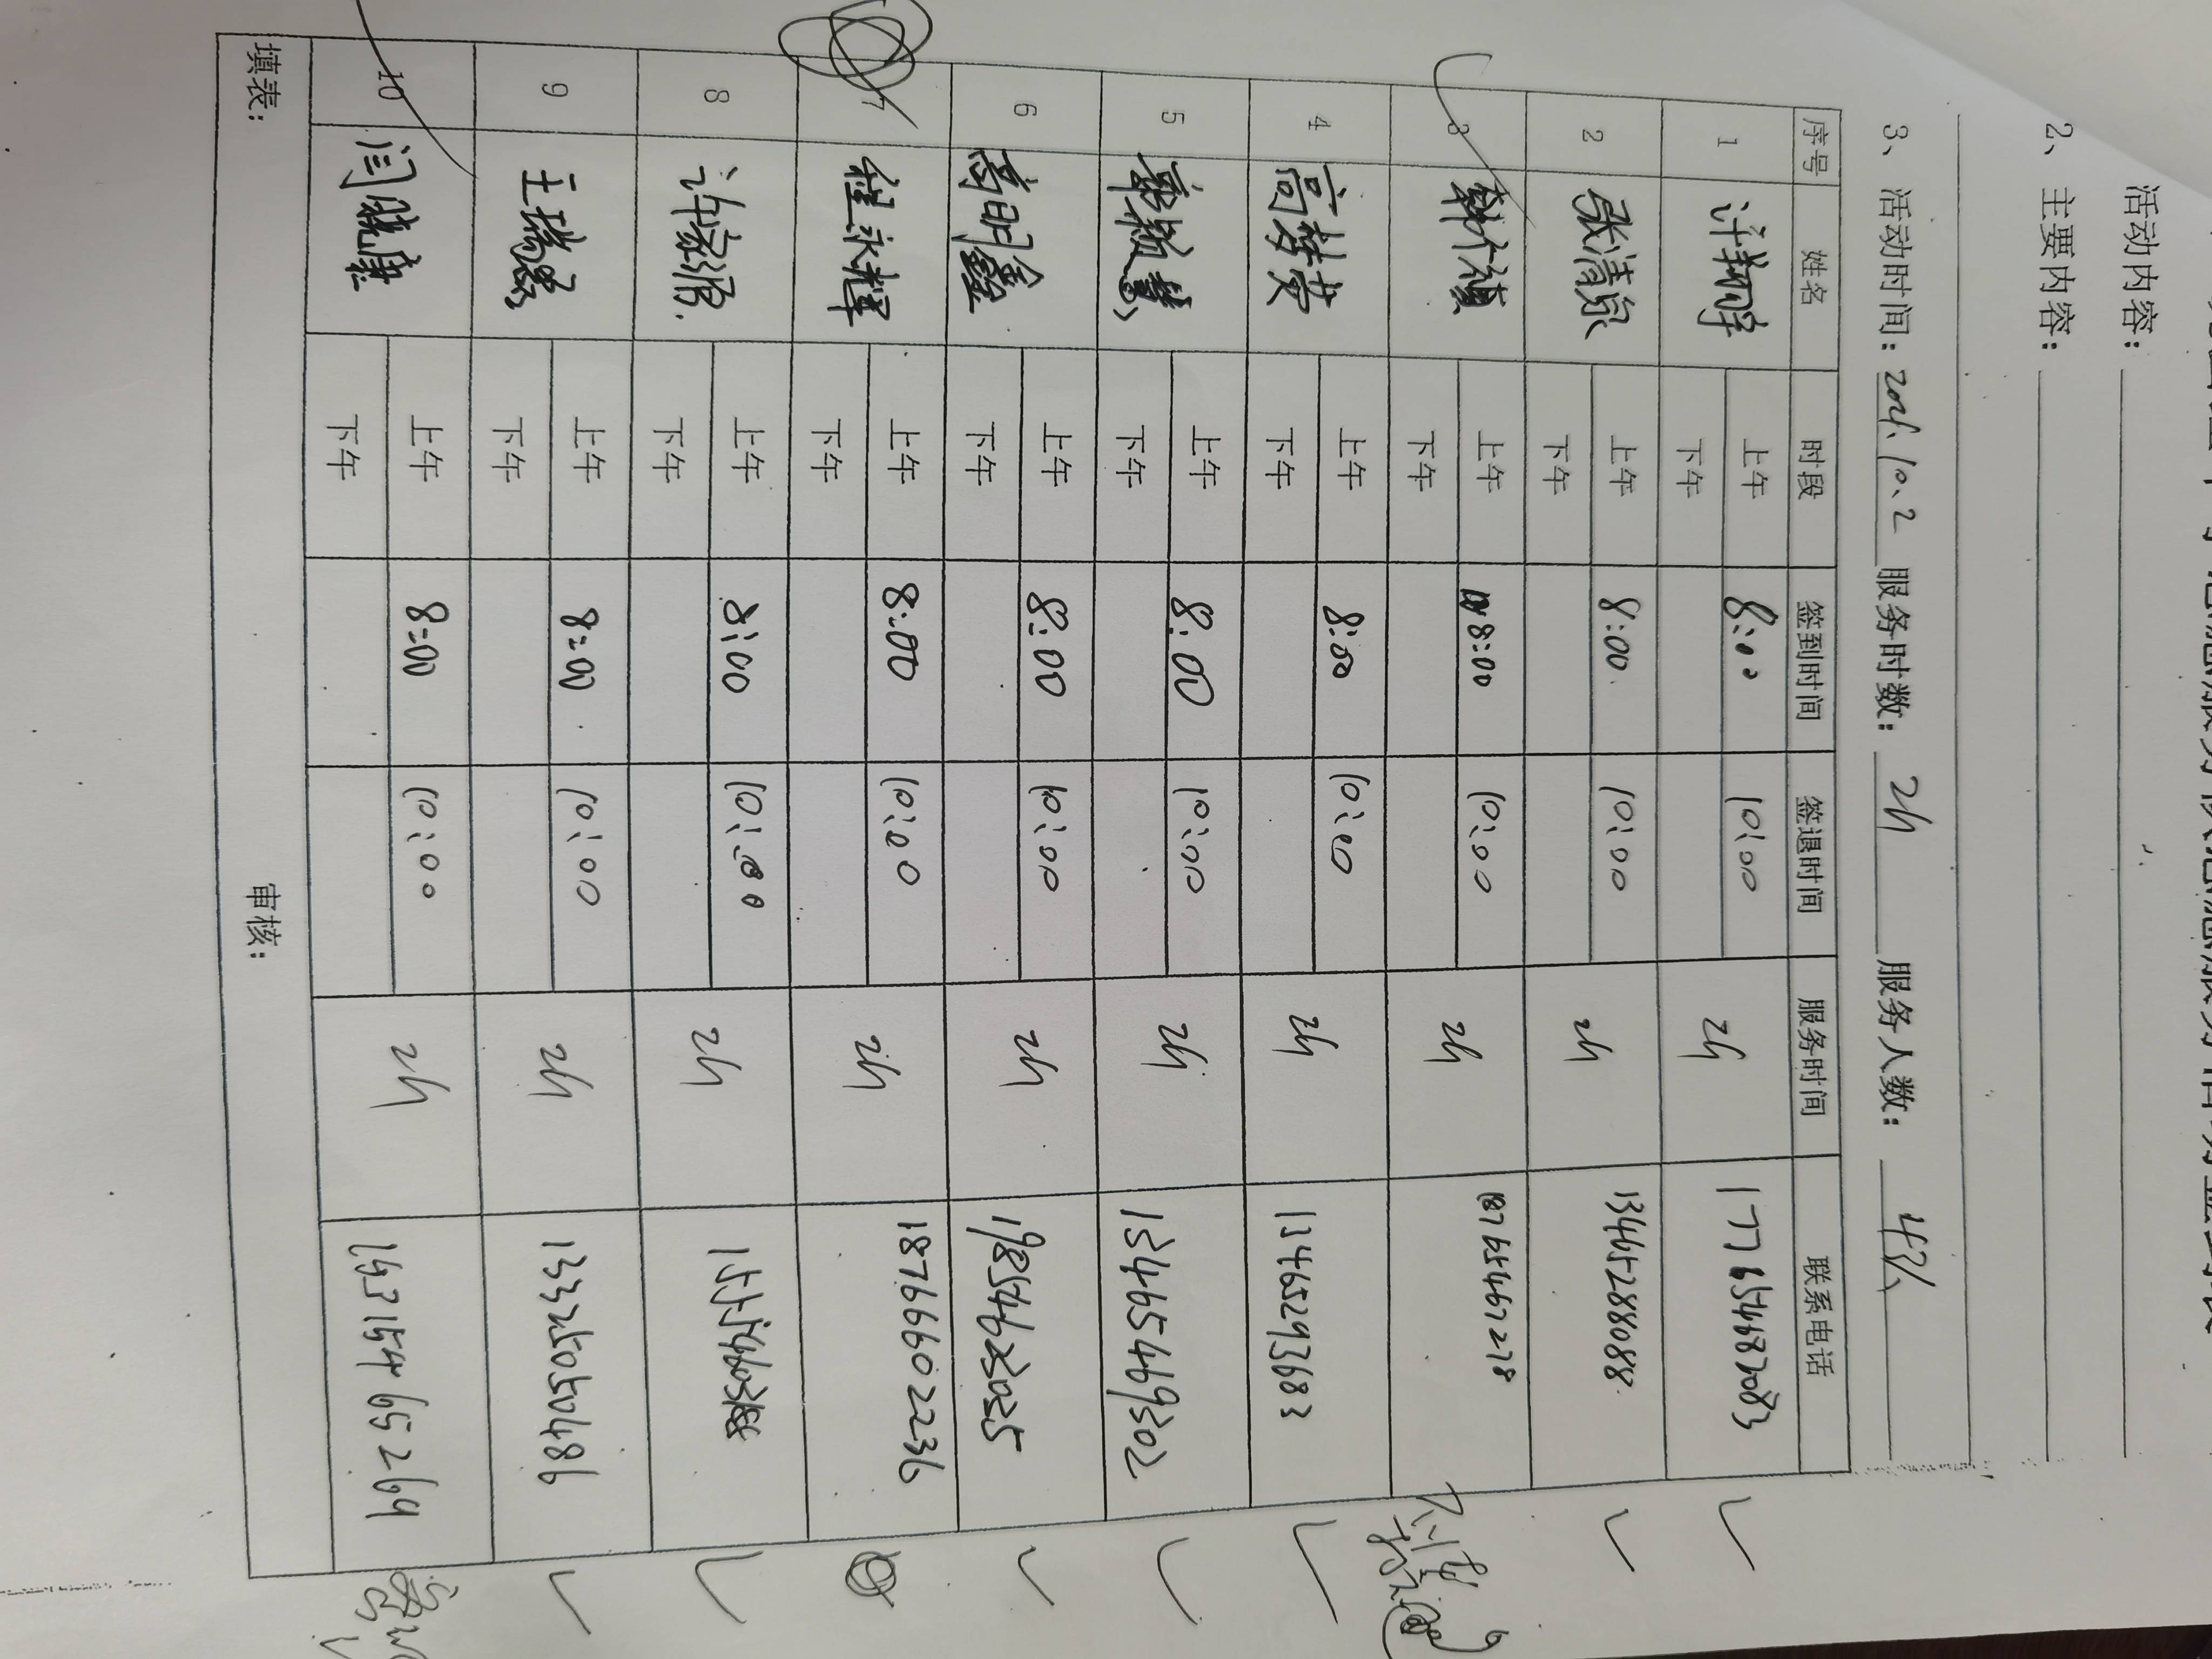 活动内容：
2、主要内容：
3、活动时间：2024.10.2 服务时数：2h 服务人数：
序号 姓名 时段 签到时间 签退时间 服务时间 联系电话
1 许翔宇 上午 8:00 10:00 2h 17763468083
下午
2 张清泉 上午 8:00 10:00 2h 13465288088
下午
3 上午 8:00 10:00 2h 18765467278
下午
4 高梦英 上午 8:00 10:00 2h 13465293683
下午
5 上午 8:00 10:00 2h 13465469302
下午
6 高明鑫 上午 8:00 10:00 2h 19854625025
下午
7 程永辉 上午 8:00 10:00 2h 18766602236
下午
8 上午 8:00 10:00 2h
下午
9 王瑞恩 上午 8:00 10:00 2h 13325050486
下午
10 闫晓康 上午 8:00 10:00 2h
下午
填表： 审核：